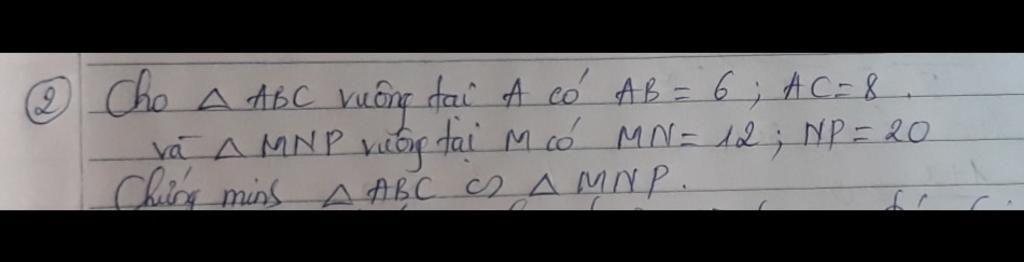 ② Cho △ ABC vuông tại A có AB = 6 ; AC = 8 .
và △ MNP vuông tại M có MN = 12 ; NP = 20
Chứng minh △ ABC ∽ △ MNP.